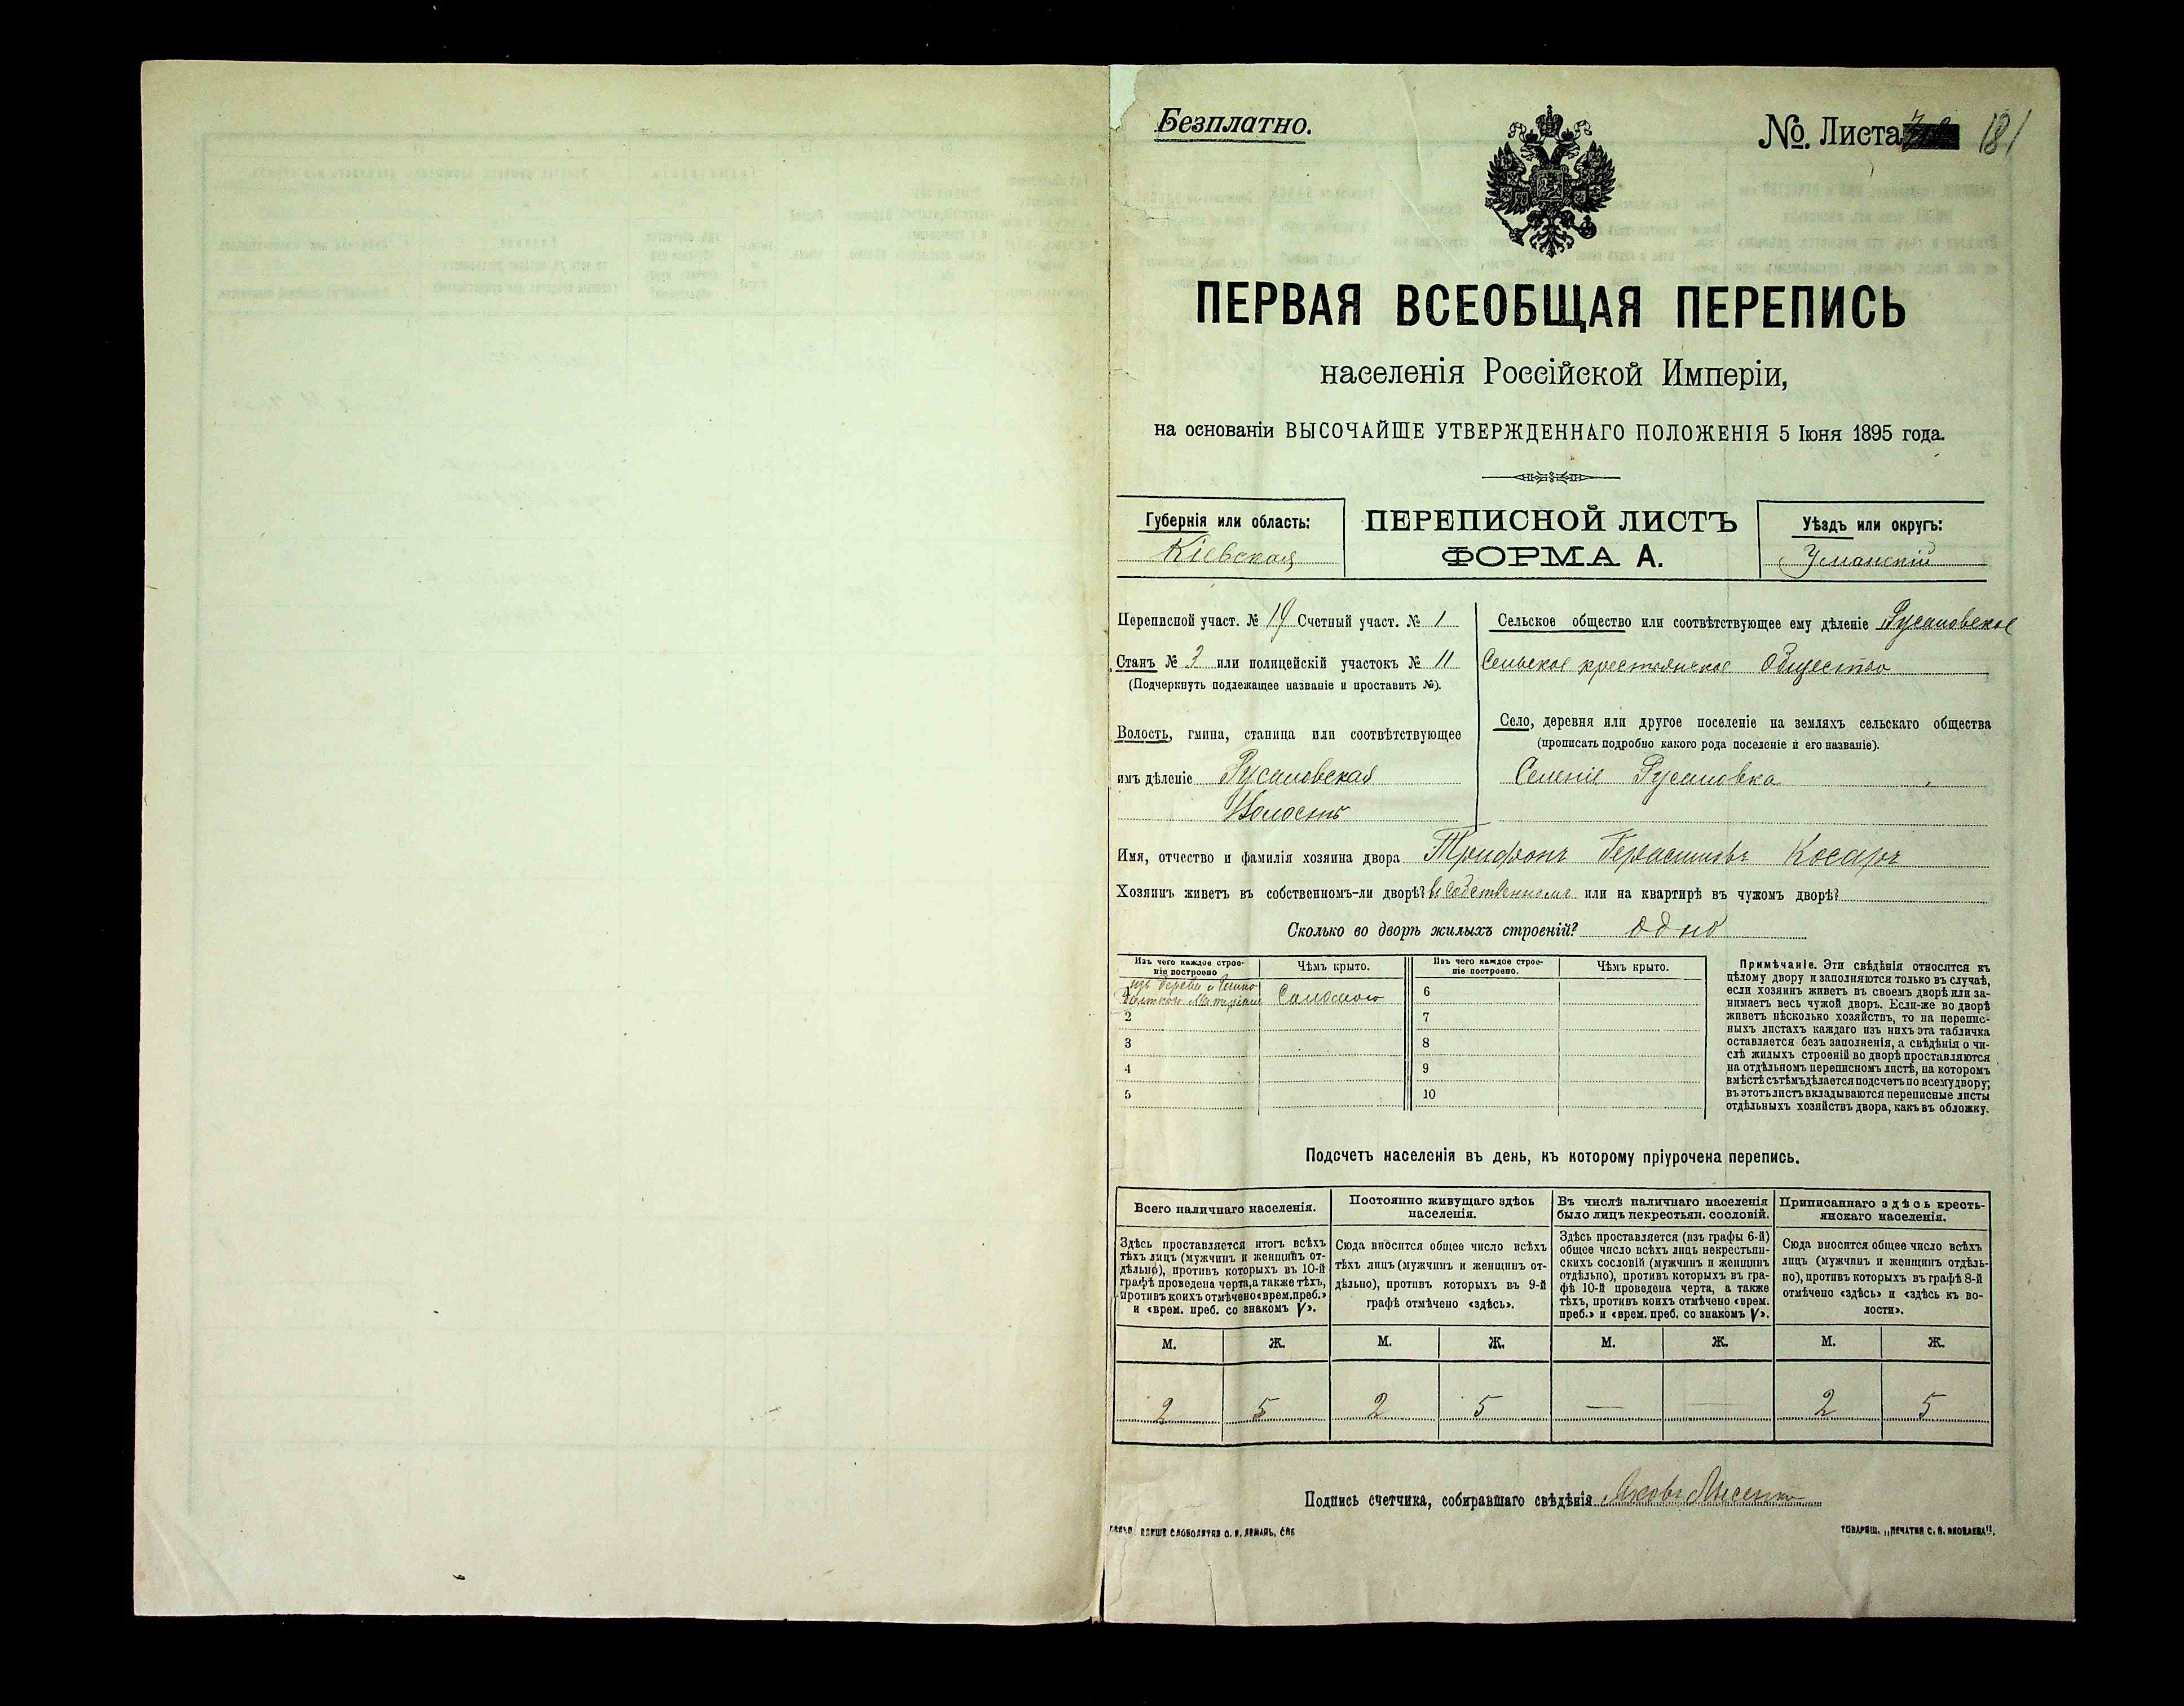 Безплатно.
№. Листа 181
ПЕРВАЯ ВСЕОБЩАЯ ПЕРЕПИСЬ
населенія Россійской Имперіи,
на основаніи ВЫСОЧАЙШЕ УТВЕРЖДЕННАГО ПОЛОЖЕНІЯ 5 Іюня 1895 года.
Губернія или область:
Кіевская
ПЕРЕПИСНОЙ ЛИСТЪ
ФОРМА А.
Уѣздъ или округъ:
Уманскій
Переписной участ. № 19 Счетный участ. № 1
Станъ № 3 или полицейскій участокъ № 11
(Подчеркнуть подлежащее названіе и проставить №).
Волость, гмина, станица или соотвѣтствующее
имъ дѣленіе Русаловская
Волость
Сельское общество или соотвѣтствующее ему дѣленіе Русаловское
Сельское крестьянское Общество
Село, деревня или другое поселеніе на земляхъ сельскаго общества
(прописать подробно какого рода поселеніе и его названіе).
Селеніе Русаловка
Имя, отчество и фамилія хозяина двора Трифонъ Герасимовъ Косаръ
Хозяинъ живетъ въ собственномъ-ли дворѣ? въ Собственномъ или на квартирѣ въ чужомъ дворѣ?
Сколько во дворѣ жилыхъ строеній? одно
Изъ чего каждое строе-
ніе построено
Чѣмъ крыто.
Изъ чего каждое строе-
ніе построено.
Чѣмъ крыто.
1 изъ дерева и
Соломою
2
3
4
5
6
7
8
9
10
Примѣчаніе. Эти свѣдѣнія относятся къ
цѣлому двору и заполняются только въ случаѣ,
если хозяинъ живетъ въ своемъ дворѣ или за-
нимаетъ весь чужой дворъ. Если-же во дворѣ
живетъ нѣсколько хозяйствъ, то на перепис-
ныхъ листахъ каждаго изъ нихъ эта табличка
оставляется безъ заполненія, а свѣдѣнія о чи-
слѣ жилыхъ строеній во дворѣ проставляются
на отдѣльномъ переписномъ листѣ, на которомъ
вмѣстѣ съ тѣмъ дѣлается подсчетъ по всему двору;
въ этотъ листъ вкладываются переписные листы
отдѣльныхъ хозяйствъ двора, какъ въ обложку.
Подсчетъ населенія въ день, къ которому пріурочена перепись.
Всего наличнаго населенія.
Здѣсь проставляется итогъ всѣхъ
тѣхъ лицъ (мужчинъ и женщинъ от-
дѣльно), противъ которыхъ въ 10-й
графѣ проведена черта, а также тѣхъ,
противъ коихъ отмѣчено «врем. преб.»
и «врем. преб. со знакомъ V».
Постоянно живущаго здѣсь
населенія.
Сюда вносится общее число всѣхъ
тѣхъ лицъ (мужчинъ и женщинъ от-
дѣльно), противъ которыхъ въ 9-й
графѣ отмѣчено «здѣсь».
Въ числѣ наличнаго населенія
было лицъ некрестьян. сословій.
Здѣсь проставляется (изъ графы 6-й)
общее число всѣхъ лицъ некрестьян-
скихъ сословій (мужчинъ и женщинъ
отдѣльно), противъ которыхъ въ гра-
фѣ 10-й проведена черта, а также
тѣхъ, противъ коихъ отмѣчено «врем.
преб.» и «врем. преб. со знакомъ V».
Приписаннаго здѣсь кресть-
янскаго населенія.
Сюда вносится общее число всѣхъ
лицъ (мужчинъ и женщинъ отдѣль-
но), противъ которыхъ въ графѣ 8-й
отмѣчено «здѣсь» и «здѣсь къ во-
лости».
М. Ж. М. Ж. М. Ж. М. Ж.
2 5 2 5 — — 2 5
Подпись счетчика, собиравшаго свѣдѣнія Яковъ Лысенко
СЛОВОЛИТНИ О. И. ЛЕМАНЪ, СПБ
ТОВАРИЩ. „ПЕЧАТНЯ С. П. ЯКОВЛЕВА".